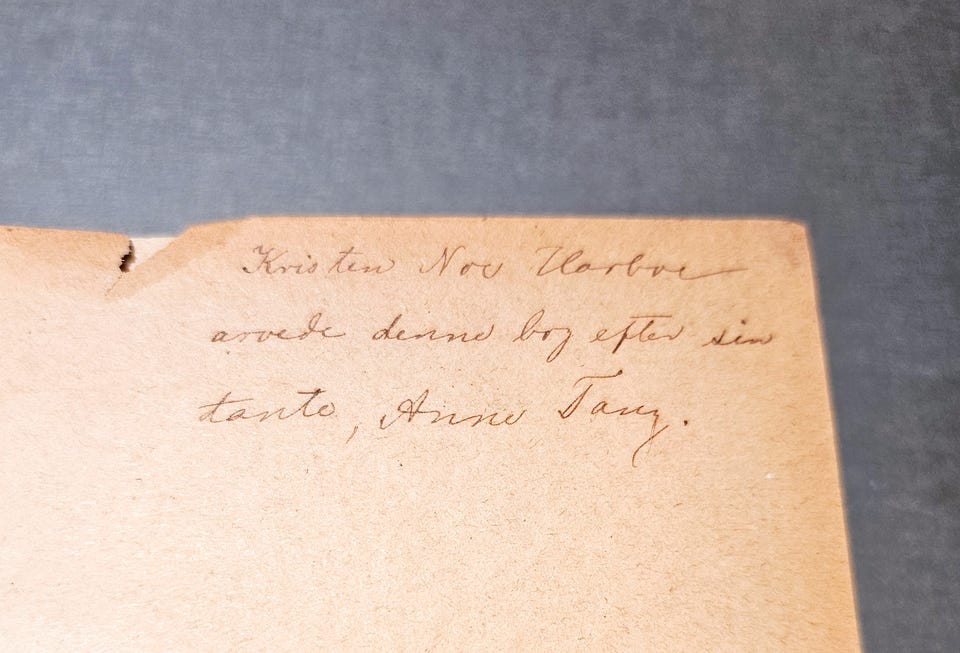 Kristen Noe Harboe
arvede denne bog efter sin
tante, Anne Tang.